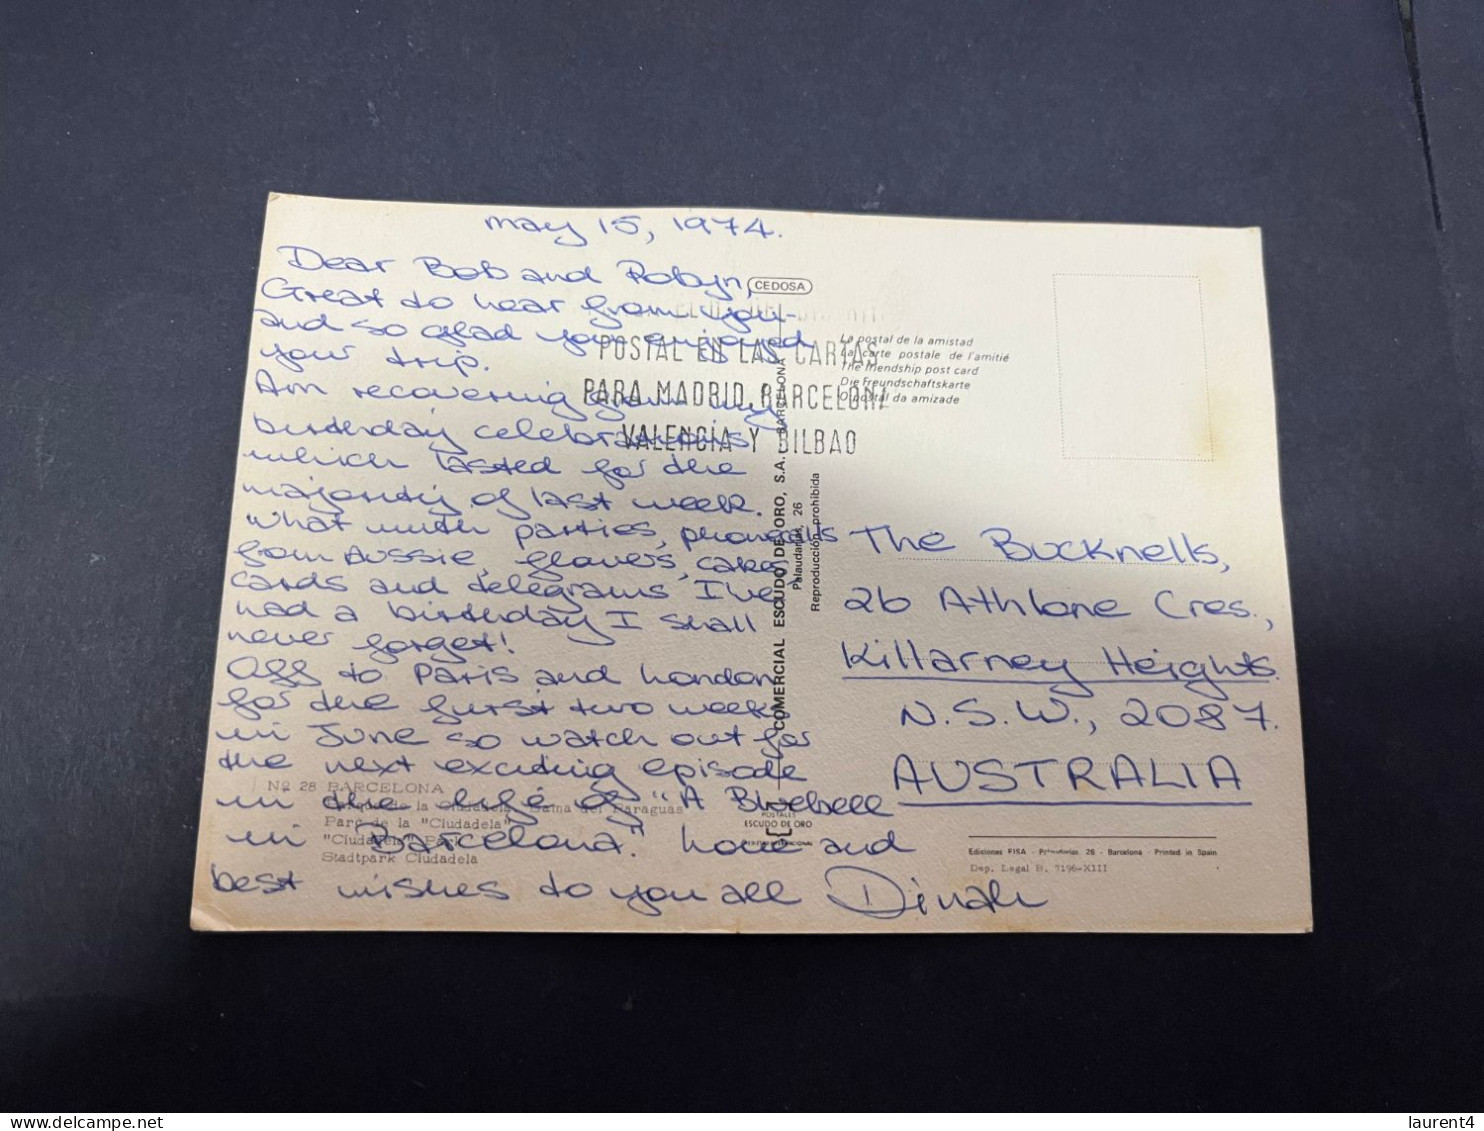 May 15, 1974.
Dear Bob and Robyn,
Great to hear from you -
and so glad you enjoyed
your trip.
Am recovering from my
birthday celebrations
which lasted for the
majority of last week.
What with parties, phonecalls
from Aussie, flowers, cakes,
cards and telegrams I've
had a birthday I shall
never forget!
Off to Paris and London
for the first two weeks
in June so watch out for
the next exciting episode
in the life of "A Bluebell
in Barcelona." Love and
best wishes to you all Dinah
CEDOSA
POSTAL EN LAS CARTAS
PARA MADRID, BARCELONA
VALENCIA Y BILBAO
La postal de la amistad
La carte postale de l'amitié
The friendship post card
Die freundschaftskarte
O postal da amizade
COMERCIAL ESCUDO DE ORO, S.A. - BARCELONA
Palaudarias, 26
Reproducción prohibida
The Bucknells,
26 Athlone Cres.,
Killarney Heights.
N.S.W., 2087.
AUSTRALIA
Nº 28 BARCELONA
Parque de la Ciudadela. Dama del Paraguas
Parc de la "Ciudadela"
"Ciudadela" Park
Stadtpark Ciudadela
POSTALES
ESCUDO DE ORO
Ediciones FISA - Palaudarias, 26 - Barcelona - Printed in Spain
Dep. Legal B. 5196-XIII
laurent4